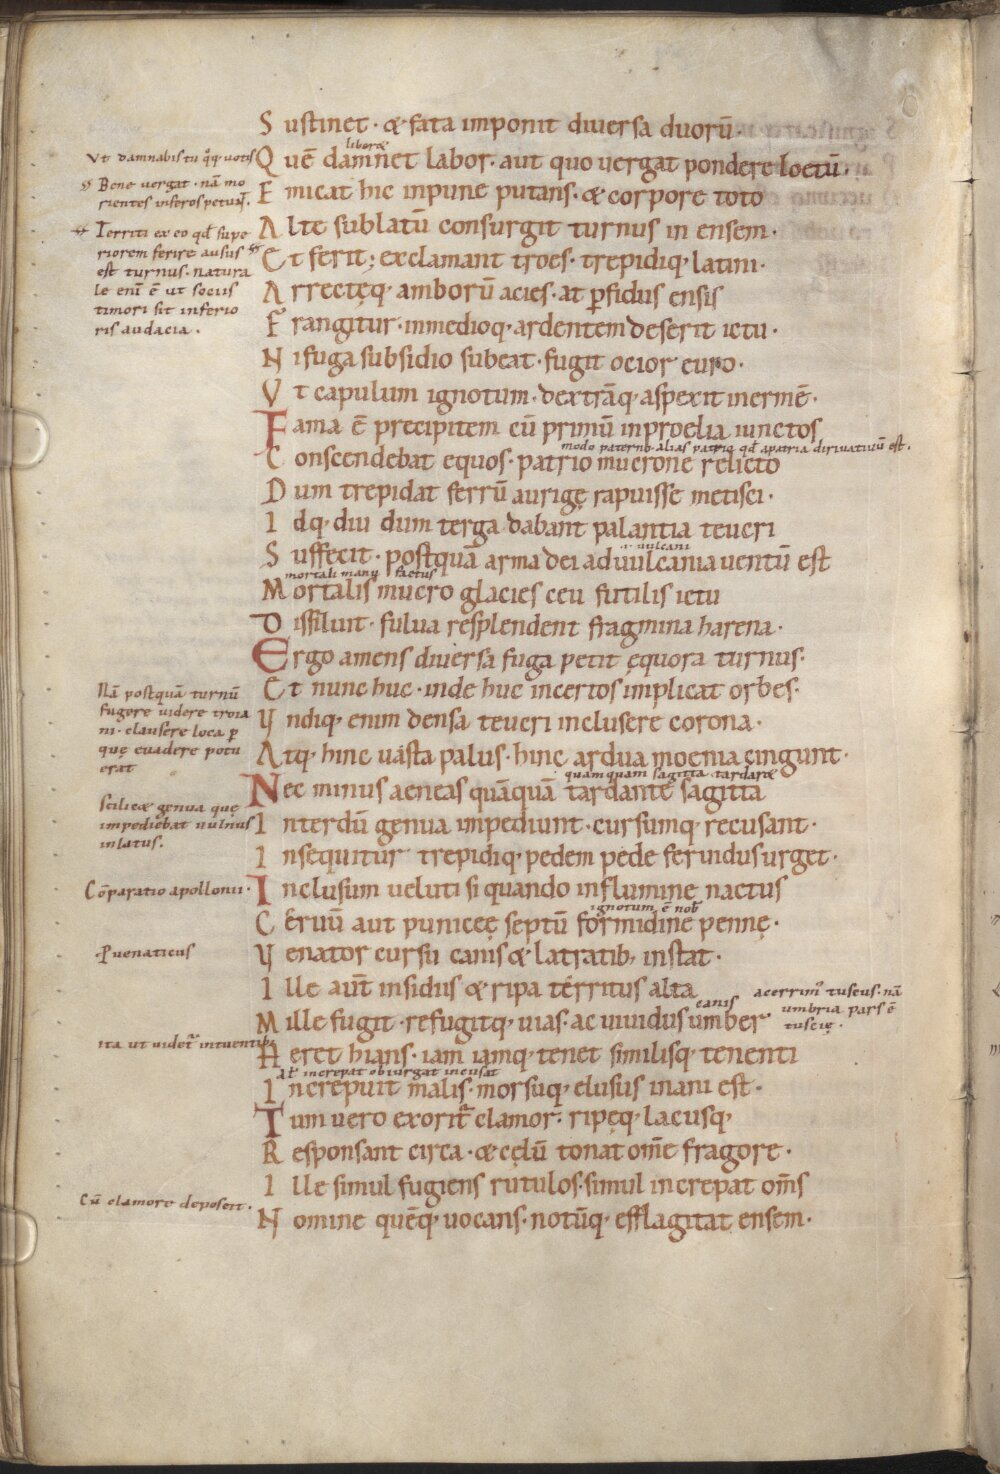 Sustinet · & fata imponit diuersa duorū ·
liber&
Vt damnabis tu q̄q· uotis
Quē damnet labor · aut quo uergat pondere loetū ·
Bene uergat · nā mo
rientes inferos petunt̄ .
Emicat hic inpune putans · & corpore toto
Territi ex eo qđ supe
riorem ferire ausus
est turnus · natura
le enī ē ut socus
timori sit inferio
ris audacia .
Alte sublatū consurgit turnus in ensem ·
Et ferit ; exclamant troes · trepidiq· latini ·
Arrectęq· amborū acies · at ꝑfidus ensis
Frangitur · inmedioq· ardentem deserit ictu ·
Nifuga subsidio subeat · fugit ocior euro ·
Vt capulum ignotum · dextrāq· aspexit inermē ·
Fama ē precipitem cū primū inproelia iunctos
modo paterno · alias patrio qđ apatria diriuatiuū est .
Conscendebat equos · patrio mucrone relicto
Dum trepidat ferrū aurigę rapuisse metisci ·
Idq· diu dum terga dabant palantia teucri
.i. uulcani
Suffecit · postquā arma dei aduulcania uentū est
mortali manu factus
Mortalis mucro glacies ceu futilis ictu
Dissiluit · fulua resplendent fragmina harena ·
Ergo amens diuersa fuga petit ęquora turnus ·
Et nunc huc · inde huc incertos implicat orbes ·
Nā postquā turnū
fugere uidere troia
ni · clausere loca ꝑ
quę euadere potu
erāt
Vndiq· enim densa teucri inclusere corona ·
Atq· hinc uasta palus · hinc ardua moenia cingunt ·
quamquam sagitta tardat&
Nec minus aeneas quāquā tardante sagitta
scilic& genua quę
impediebat uulnus
inlatus .
Interdū genua impediunt · cursumq· recusant ·
Insequitur trepidiq· pedem pede feruidus urget ·
Cōparatio apollonii ·
Inclusum ueluti si quando influmine nactus
ignotum ē nob̄
Ceruū aut puniceę septū formidine pennę ·
·P uenaticus
Venator cursu canis & latratib; instat ·
Ille aūt insidiis & ripa territus alta
canis
acerrim̄ tuscus · nā
umbria pars ē
tuscię ·
Mille fugit · refugitq· uias · ac uiuidus umber
ita ut uidet̄ intuentibꝫ
Heret hians · iam iamq· tenet similisq· tenenti
al̄ increpat obiurgat incusat
Increpuit malis · morsuq· elusus inani est ·
Tum uero exorit̄ clamor · ripęq· lacusq·
Responsant circa · & cęlū tonat om̄e fragore ·
Ille simul fugiens rutulos · simul increpat om̄s
Cū clamore deposcit .
Nomine quēq· uocans · notūq· efflagitat ensem ·